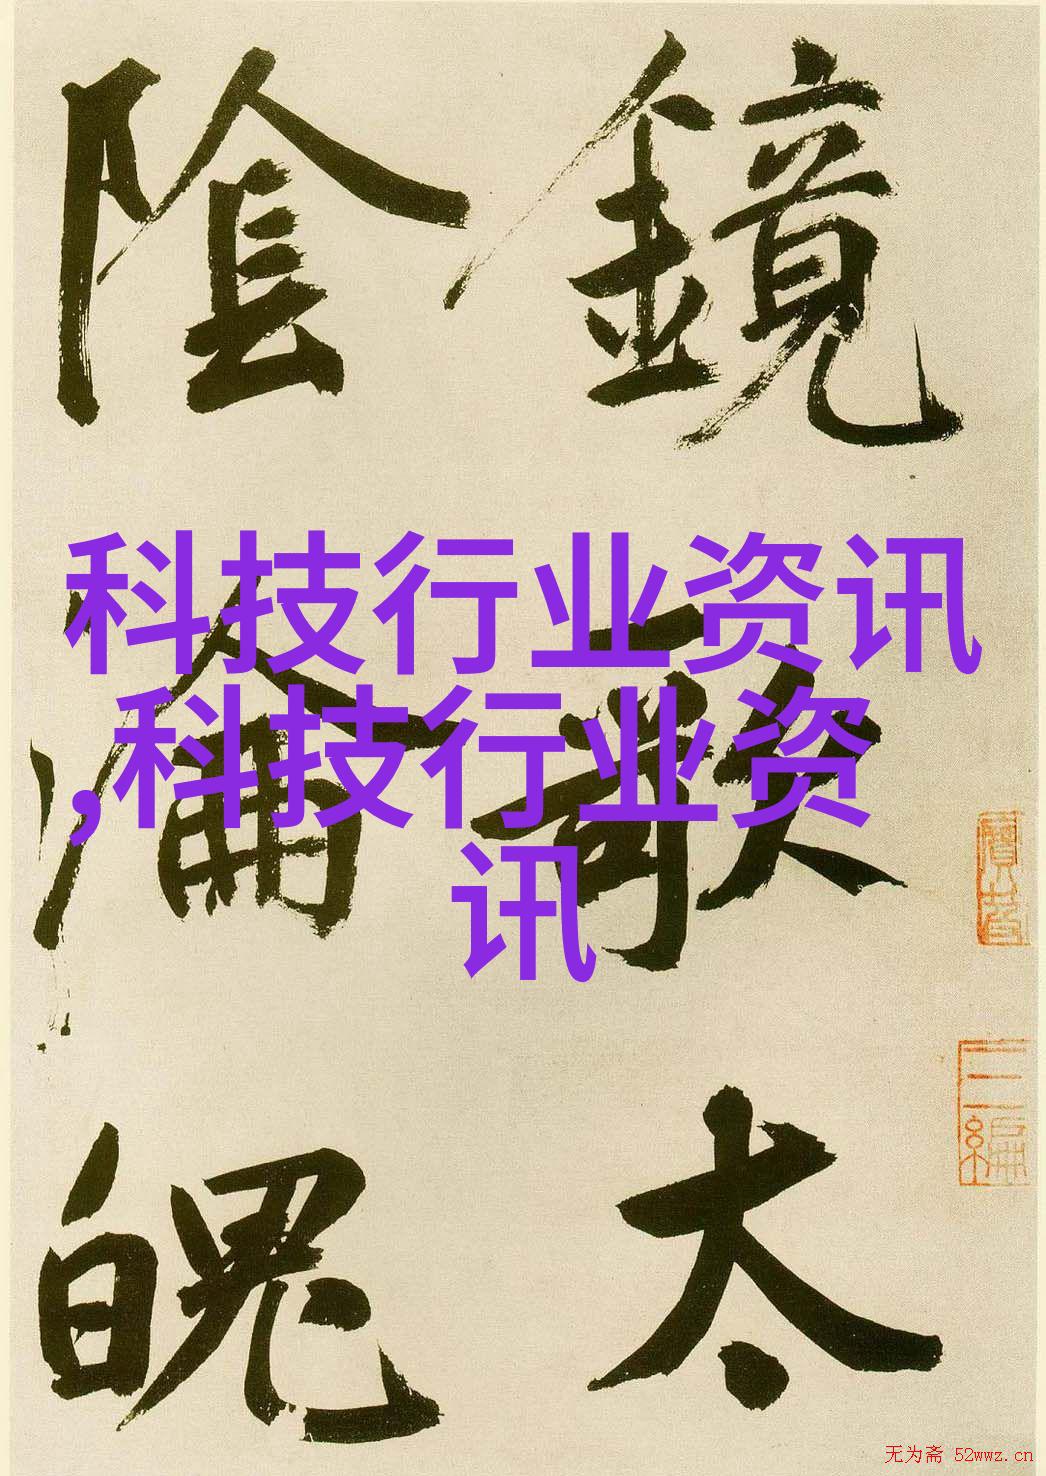 鏡歌太
陰淪魄
科技行业资讯
,科技行业资
讯
无为斋 52wwz.cn